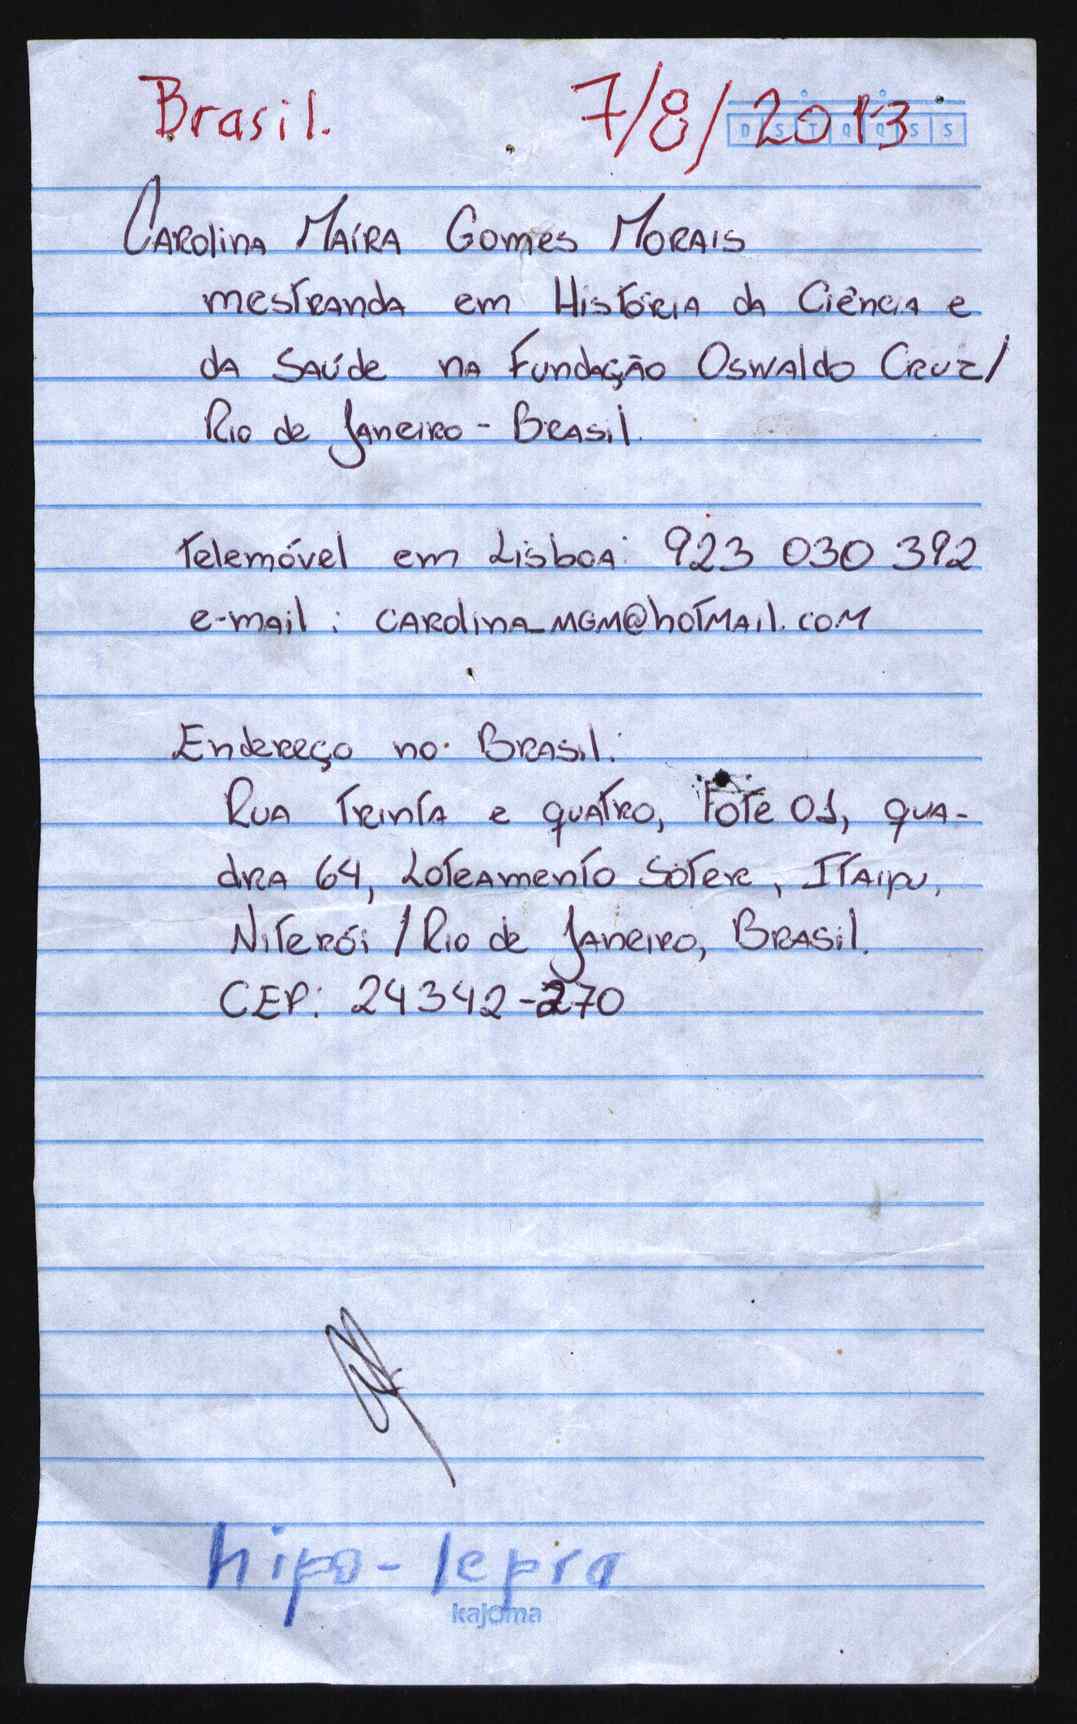 Brasil. 7/8/2013
D S T Q Q S S
Carolina Maíra Gomes Morais
mestranda em História da Ciência e
da Saúde na Fundação Oswaldo Cruz/
Rio de Janeiro - Brasil.
Telemóvel em Lisboa: 923 030 392
e-mail: carolina_mgm@hotmail.com
Endereço no Brasil:
Rua Trinta e quatro, lote 01, qua-
dra 64, Loteamento Soter, Itaipu,
Niterói / Rio de Janeiro, Brasil.
CEP: 24342-270
hipo-lepra
kajoma